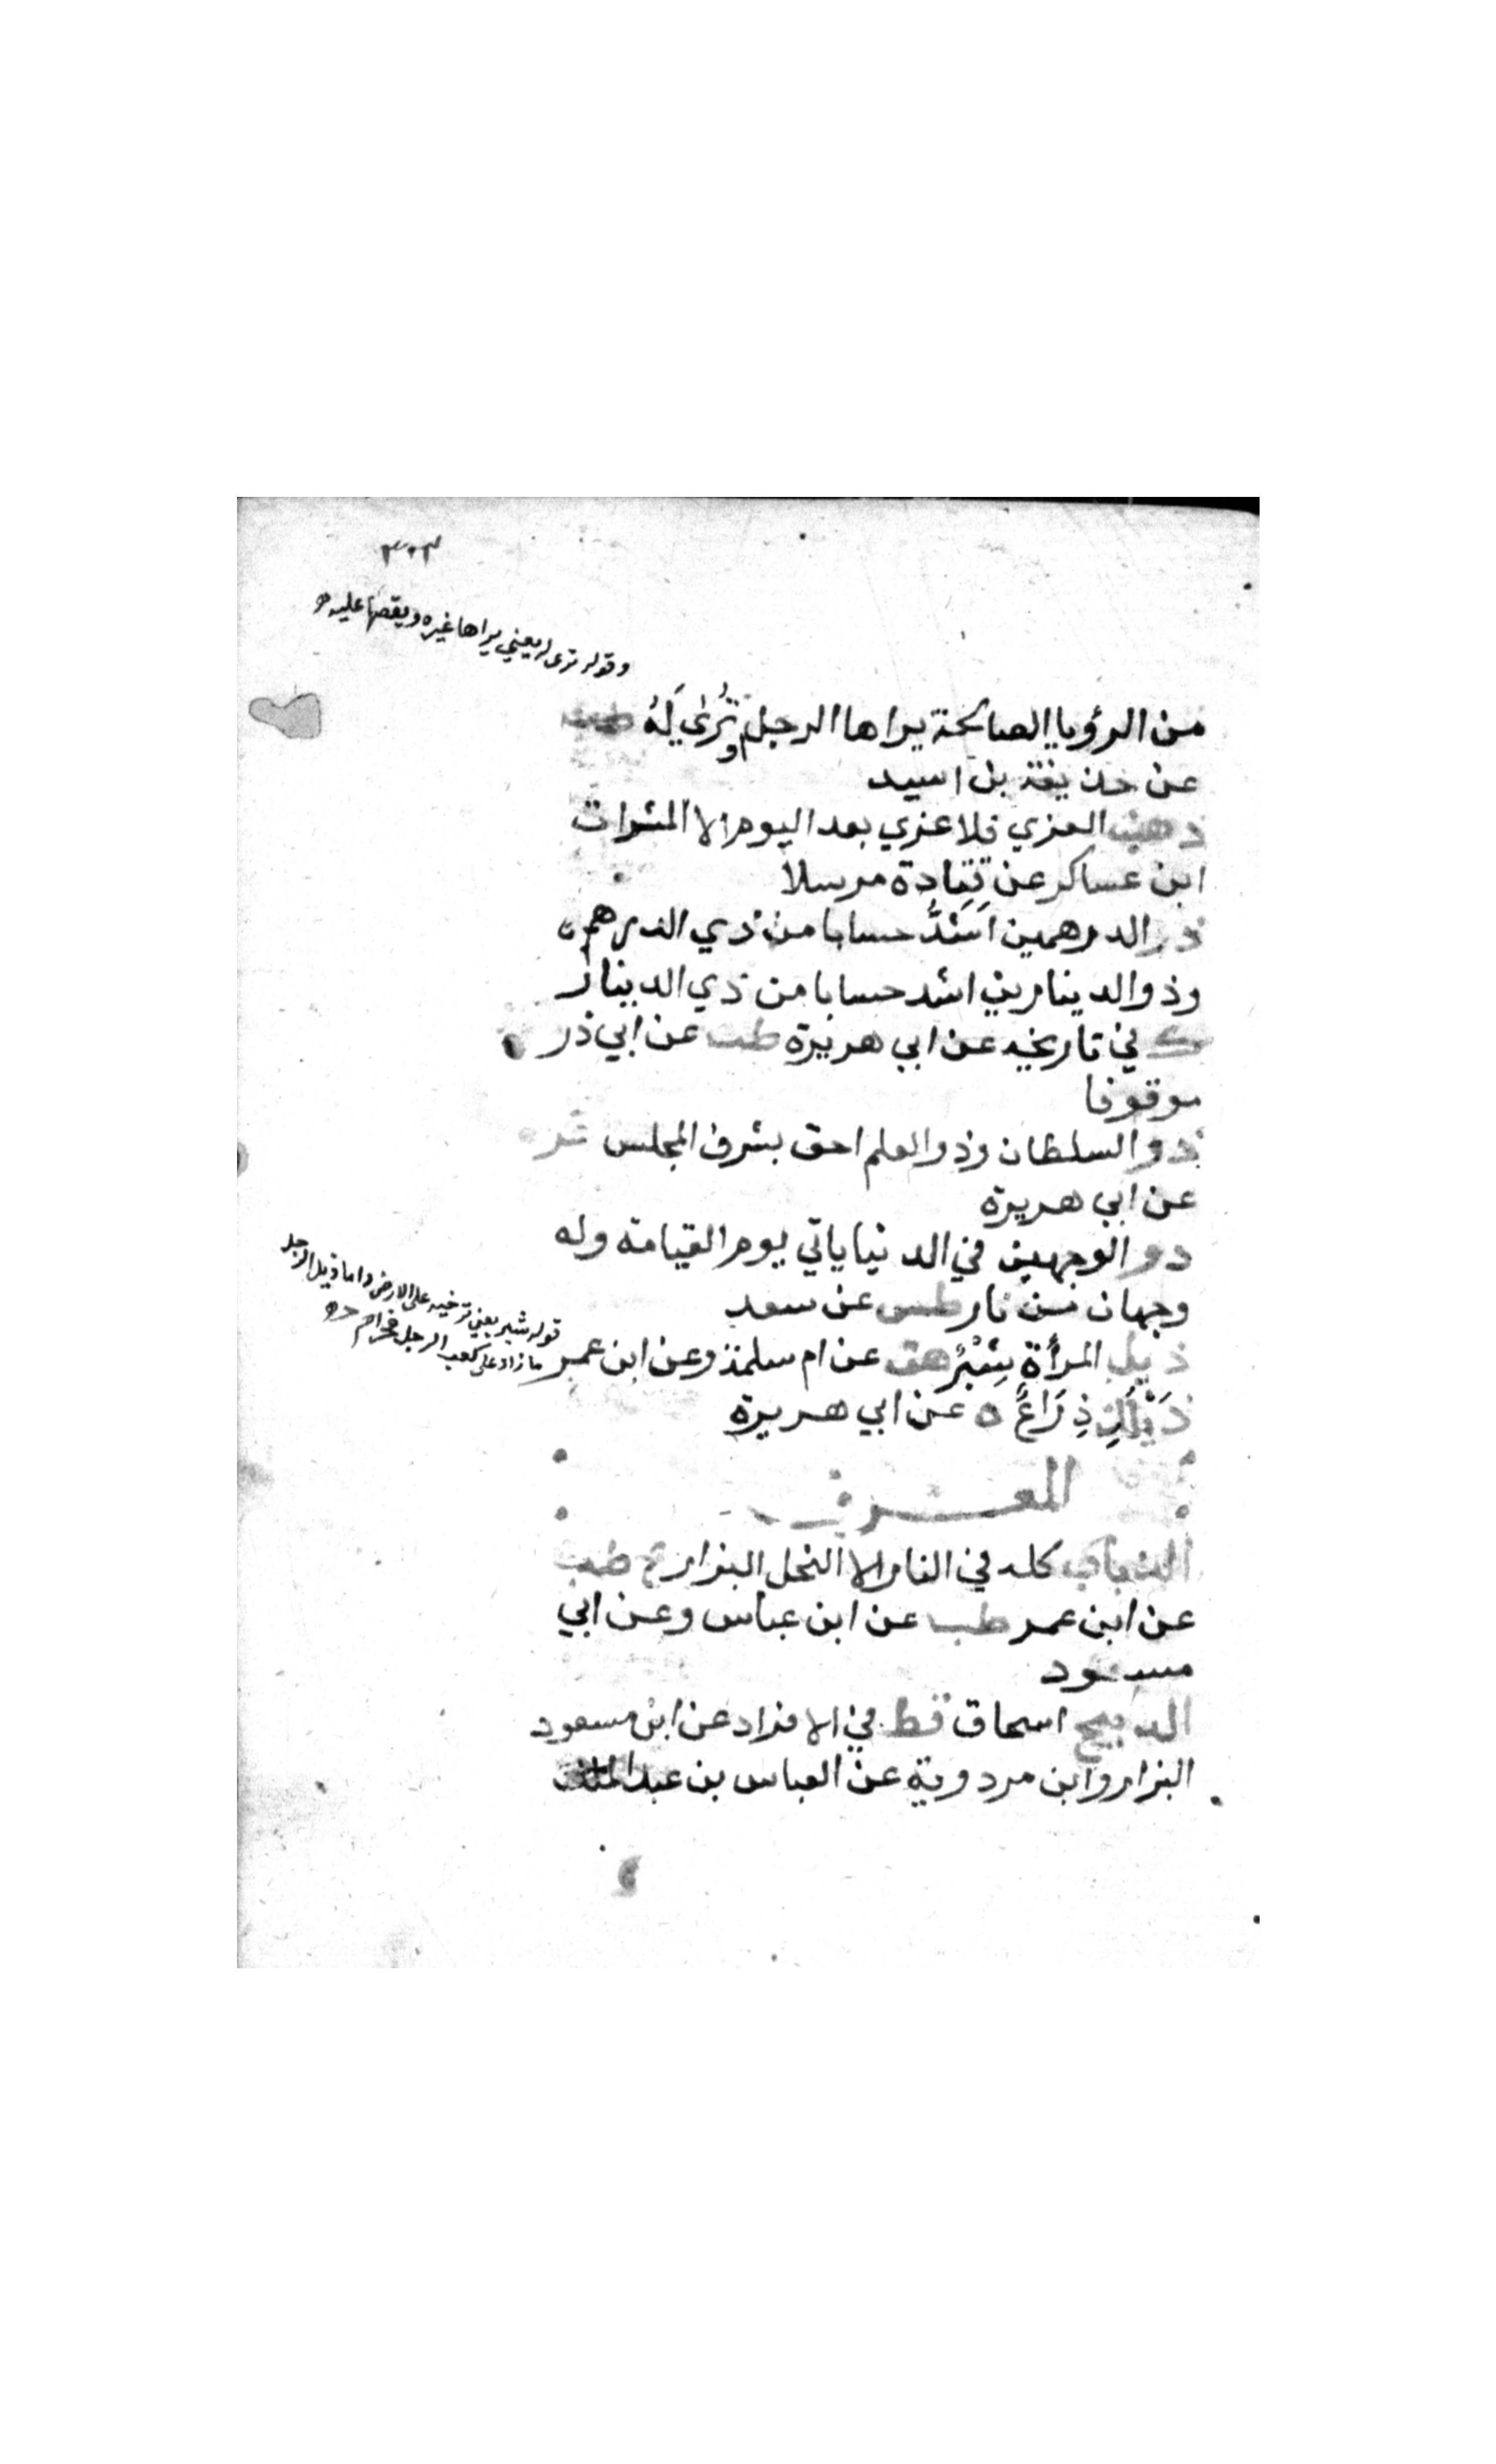 ٣٠٣
وقوله ترى له يعني يراها غيره ويقصها عليه
من الرؤيا الصالحة يراها الرجل او تُرىٰ لَهُ طب
عن حذيفة بن اسيد
ذهبت العزي فلا عزي بعد اليوم الا المبشرات
ابن عساكر عن قتادة مرسلا
ذو الدرهمين اشدُّ حسابا من ذي الدرهم
وذو الدينارين اشد حسابا من ذي الدينار
ك في تاريخه عن ابي هريرة عن ابي ذر
موقوفا
ذو السلطان وذو العلم احق بشرف المجلس
عن ابي هريرة
ذو الوجهين في الدنيا ياتي يوم القيامة وله
وجهان من نار طس عن سعد
قوله شبر يعني ترخيه على الارض واما ذيل الرجل
ما زاد على كعب الرجل فحرام
ذيل المرأة شِبْرٌ هق عن ام سلمة وعن ابن عمر
ذَيْلُكِ ذِرَاعٌ ه عن ابي هريرة
المعرف
الذباب كله في النار الا النحل البزار ع طب
عن ابن عمر طب عن ابن عباس وعن ابي
مسعود
الذبيح اسحاق قط في الافراد عن ابن مسعود
البزار وابن مردوية عن العباس بن عبدالمطلب